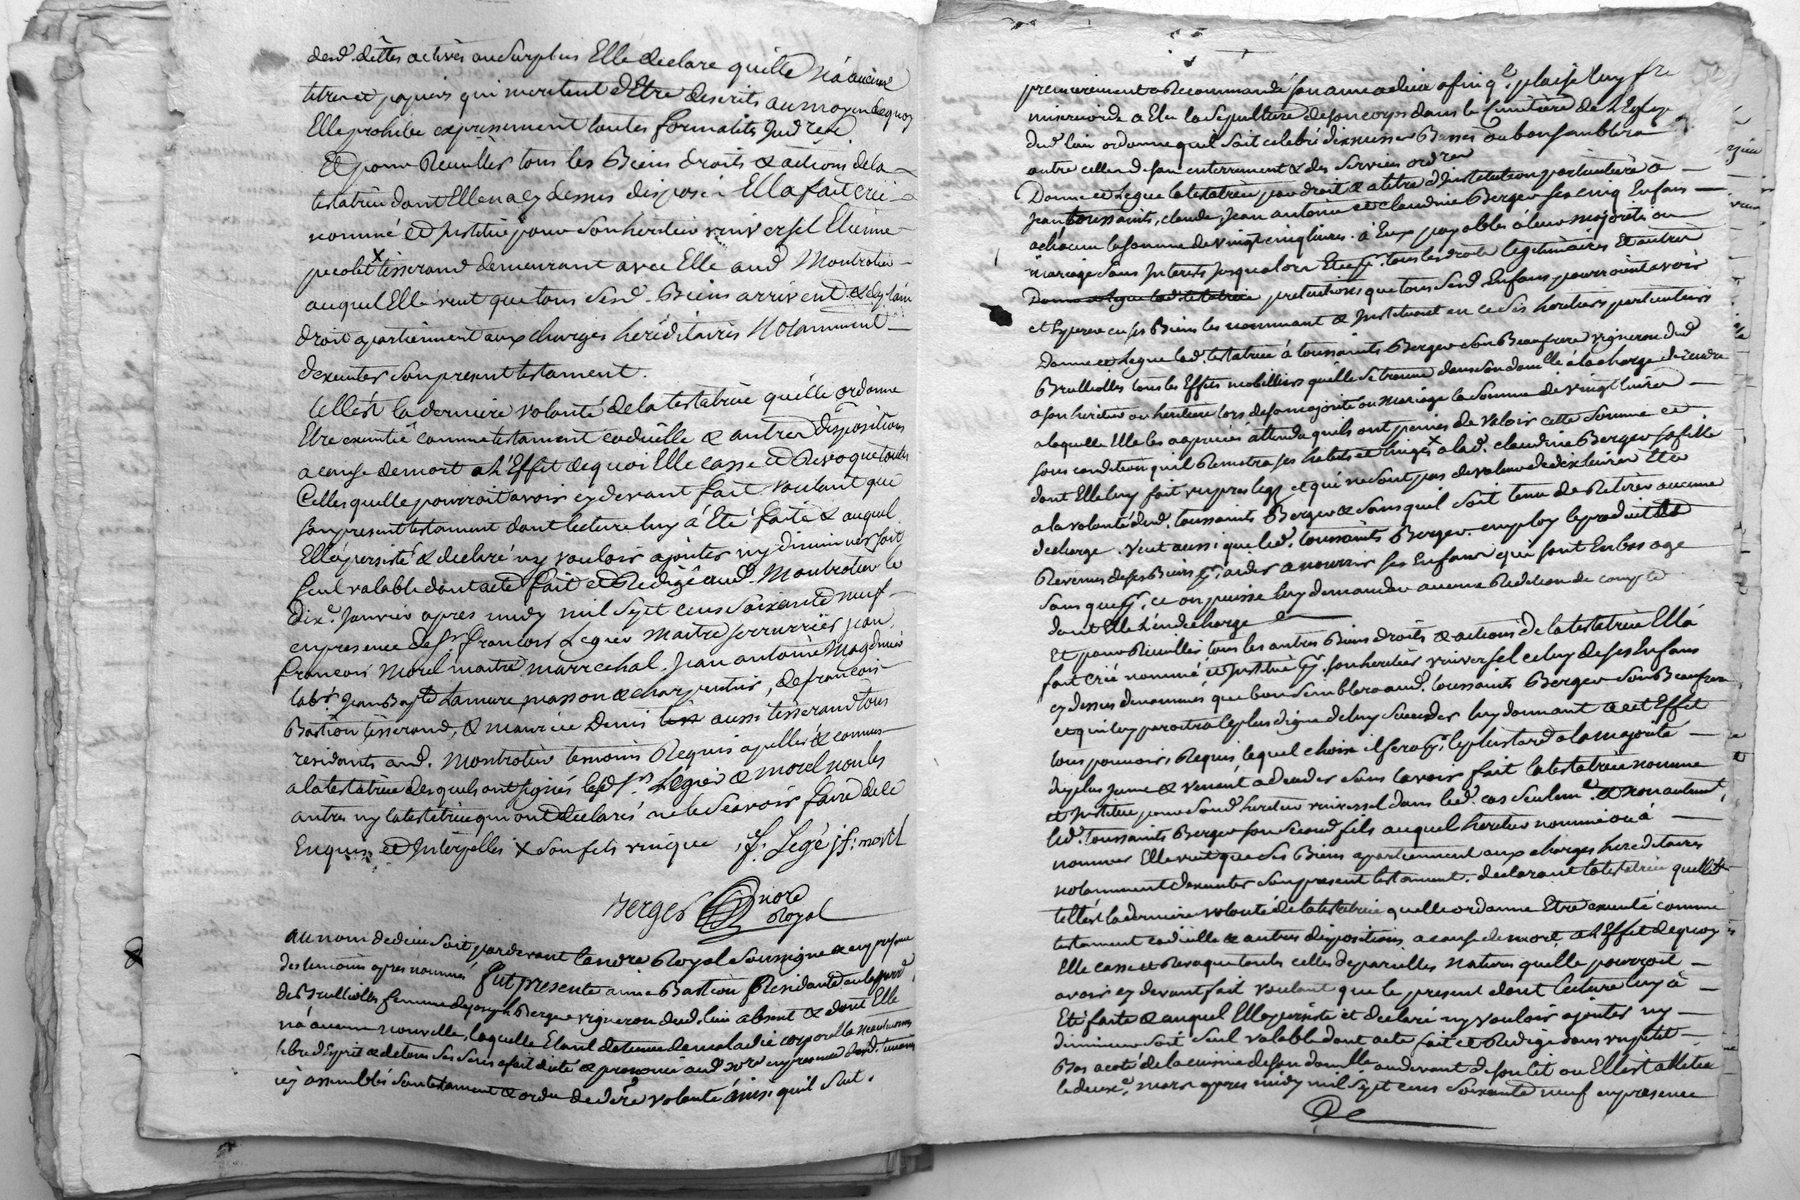 desd. dettes actives au surplus Elle declare quelle n'a aucune
titres et papiers qui meritent d'Etre descrits au moyen de quoy
Elle prohibe expressement toutes formalités
Et pour Recuillir tous les Biens droits & actions de la
testatrice dont Elle n'a cy dessus disposé Ella fait créé
nommé et Institué pour son heritier universel Etienne
pecolet x tisserand demeurant avec Elle aud. Montrotier
auquel Elle veut que tous sesd. Biens arrivent &
droit apartiennent aux charges heréditaires Notamment
dexecuter son present testament.
telle est la derniere volonté de la testatrice quelle ordonne
Etre executée comme testament codicille & autres dispositions
a cause de mort a l'Effet de quoi Elle casse et Revoque toutes
Celles quelle pourroit avoir cy devant fait voulant que
son present testament dont lecture luy a Eté faite & auquel
Elle a persisté & declaré ny vouloir ajouter ny diminuer soit
seul valable dont acte fait et Redigé aud. Montrotier le
dix. Janvier apres midy mil sept cens soixante neuf
en presence de Sr. francois Legier Maitre serrurier jean
francois Morel maitre marrechal, Jean antoine
labr. Jean Bapte Lamure masson & charpentier, de francois
Bastion tisserand, & maurice Denis aussi tisserand tous
residants aud. Montrotier temoins Requis apellés & connus
a la testatrice desquels ont signés lesd. Srs. Legier & morel non les
autres ny la testatrice qui ont declarés ne le scavoir faire de ce
Enquis et Interpellés x son fils unique . f. Legé j f: morel
Berger nore
Royal
Au nom de dieu soit pardevant le nore Royal soussigné & en presence
des temoins apres nommés fut presente anne Bastion Residante
de Brullioles femme de joseph Berger vigneron dud. lieu absent & dont Elle
n'a aucune nouvelle, laquelle Etant detenue de maladie corporelle neantmoins
libre d'Esprit & de tous ses sens a fait dicté & prononcé aud. nore en presence desd. temoins
icy assemblés son testament & ordre de dre volonté ainsi qu'il suit.
premierement a Recommandé son ame a dieu afin q. plaise luy fre
misericorde a Elu la sepulture de son corps dans le cimitière de l'Eglise
dud. lieu ordonne quil soit celebré dix messes Basses ou bon semblera
outre celles de son enterrement & des services ordres
Donne et Legue la testatrice par droit & a titre d'Institution particulière à
jean toussaints, claude, jean antoine et claudine Berger ses cinq Enfans
a chacun la somme de vingt cinq livres. a Eux payables à leur majorité ou
mariage sans Interets jusqualors Et ce pr. tous les droits legitimaires Et autres
Donne et legue lad. testatrice pretentions que tous sesd. Enfans pourroient avoir
et Esperer en ses Biens les nommant & Instituant en ce ses heritiers particuliers
Donne et Legue lad. testatrice à toussaints Berger son Beaufrere vigneron dud.
Brullioles tous les Effets mobilliers quelle se trouve dans son domlle à la charge de rendre
a son heritier ou heritiere lors de sa majorité ou mariage la somme de vingt livres
a laquelle Elle les a apreciés attendu quils ont peines de valoir cette somme et
sous condition quil Remettra ses habits et linges x a lad. claudine Berger sa fille
dont Elle luy fait un pré legs et qui ne sont pas de valeur de dix livres Et ce
a la volonté dud. toussaints Berger & sans quil soit tenu de Retirer aucune
decharge. Veut aussi que led. toussaints Berger employ le produit
Revenus de ses Biens pr. aider a nourrir ses Enfans qui sont En bas age
sans que pr. ce on puisse luy demander aucune Redition de compte
dont Elle l'en decharge
Et pour Recuillir tous les autres Biens droits & actions de la testatrice Ella
fait créé nommé et Institué pr. son heritier universel celuy de ses Enfans
cy dessus denommés que bon semblera aud. toussaints Berger son Beaufrere
et qui luy paroitra le plus digne de luy succeder luy donnant a cet Effet
tous pouvoirs Requis lequel choix il fera pr. le plus tard a la majorité
du plus jeune & venant a deceder sans lavoir fait la testatrice nomme
et Institue pour sond. heritier universel dans led. cas seulemt. et non autrement
led. toussaints Berger son second fils auquel heritier nommé ou à
nommer Elle veut que ses Biens apartiennent aux charges hereditaires
notamment dexecuter son present testament. declarant la testatrice quelle
telle est la derniere volonté de la testatrice quelle ordonne Etre executé comme
testament codicille & autres dispositions a cause de mort a l'Effet dequoy
Elle casse et Revoque toutes celles de pareilles natures quelle pourroit
avoir cy devant fait voulant que le present dont lecture luy à
Eté faite & auquel Elle persiste et declaré ny vouloir ajouter ny
diminuer soit seul valable dont acte fait et Redigé dans un petit
Bas a coté de la cuisine de son domlle au devant de son lit ou Elle est allitée
le deuxe. mars apres midy mil sept cens soixante neuf en presence